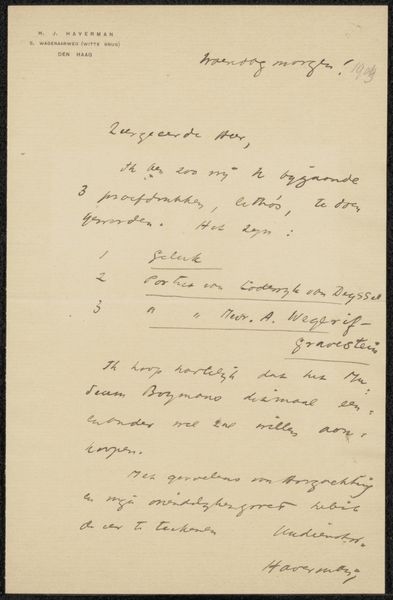 H. J. HAVERMAN
5, WAGENAARWEG (WITTE BRUG)
DEN HAAG
Woensdag morgen! 1903
Zeergeerde Heer,
Ik ben zoo vrij U bijgaande
3 proefdrukken, litho's, te doen
geworden. Het zijn:
1 Geluk
2 Portret van Lodewijk van Deyssel
3 " " Mevr. A. Wegerif-
Gravestein
Ik hoop hartelijk dat het Mu-
seum Boymans ditmaal een
en ander wel zal willen aan-
koopen.
Met gevoelens van Hoogachting
en mijn vriendelijken groet heb ik
de eer te teekenen Uw dienstw.
Haverman